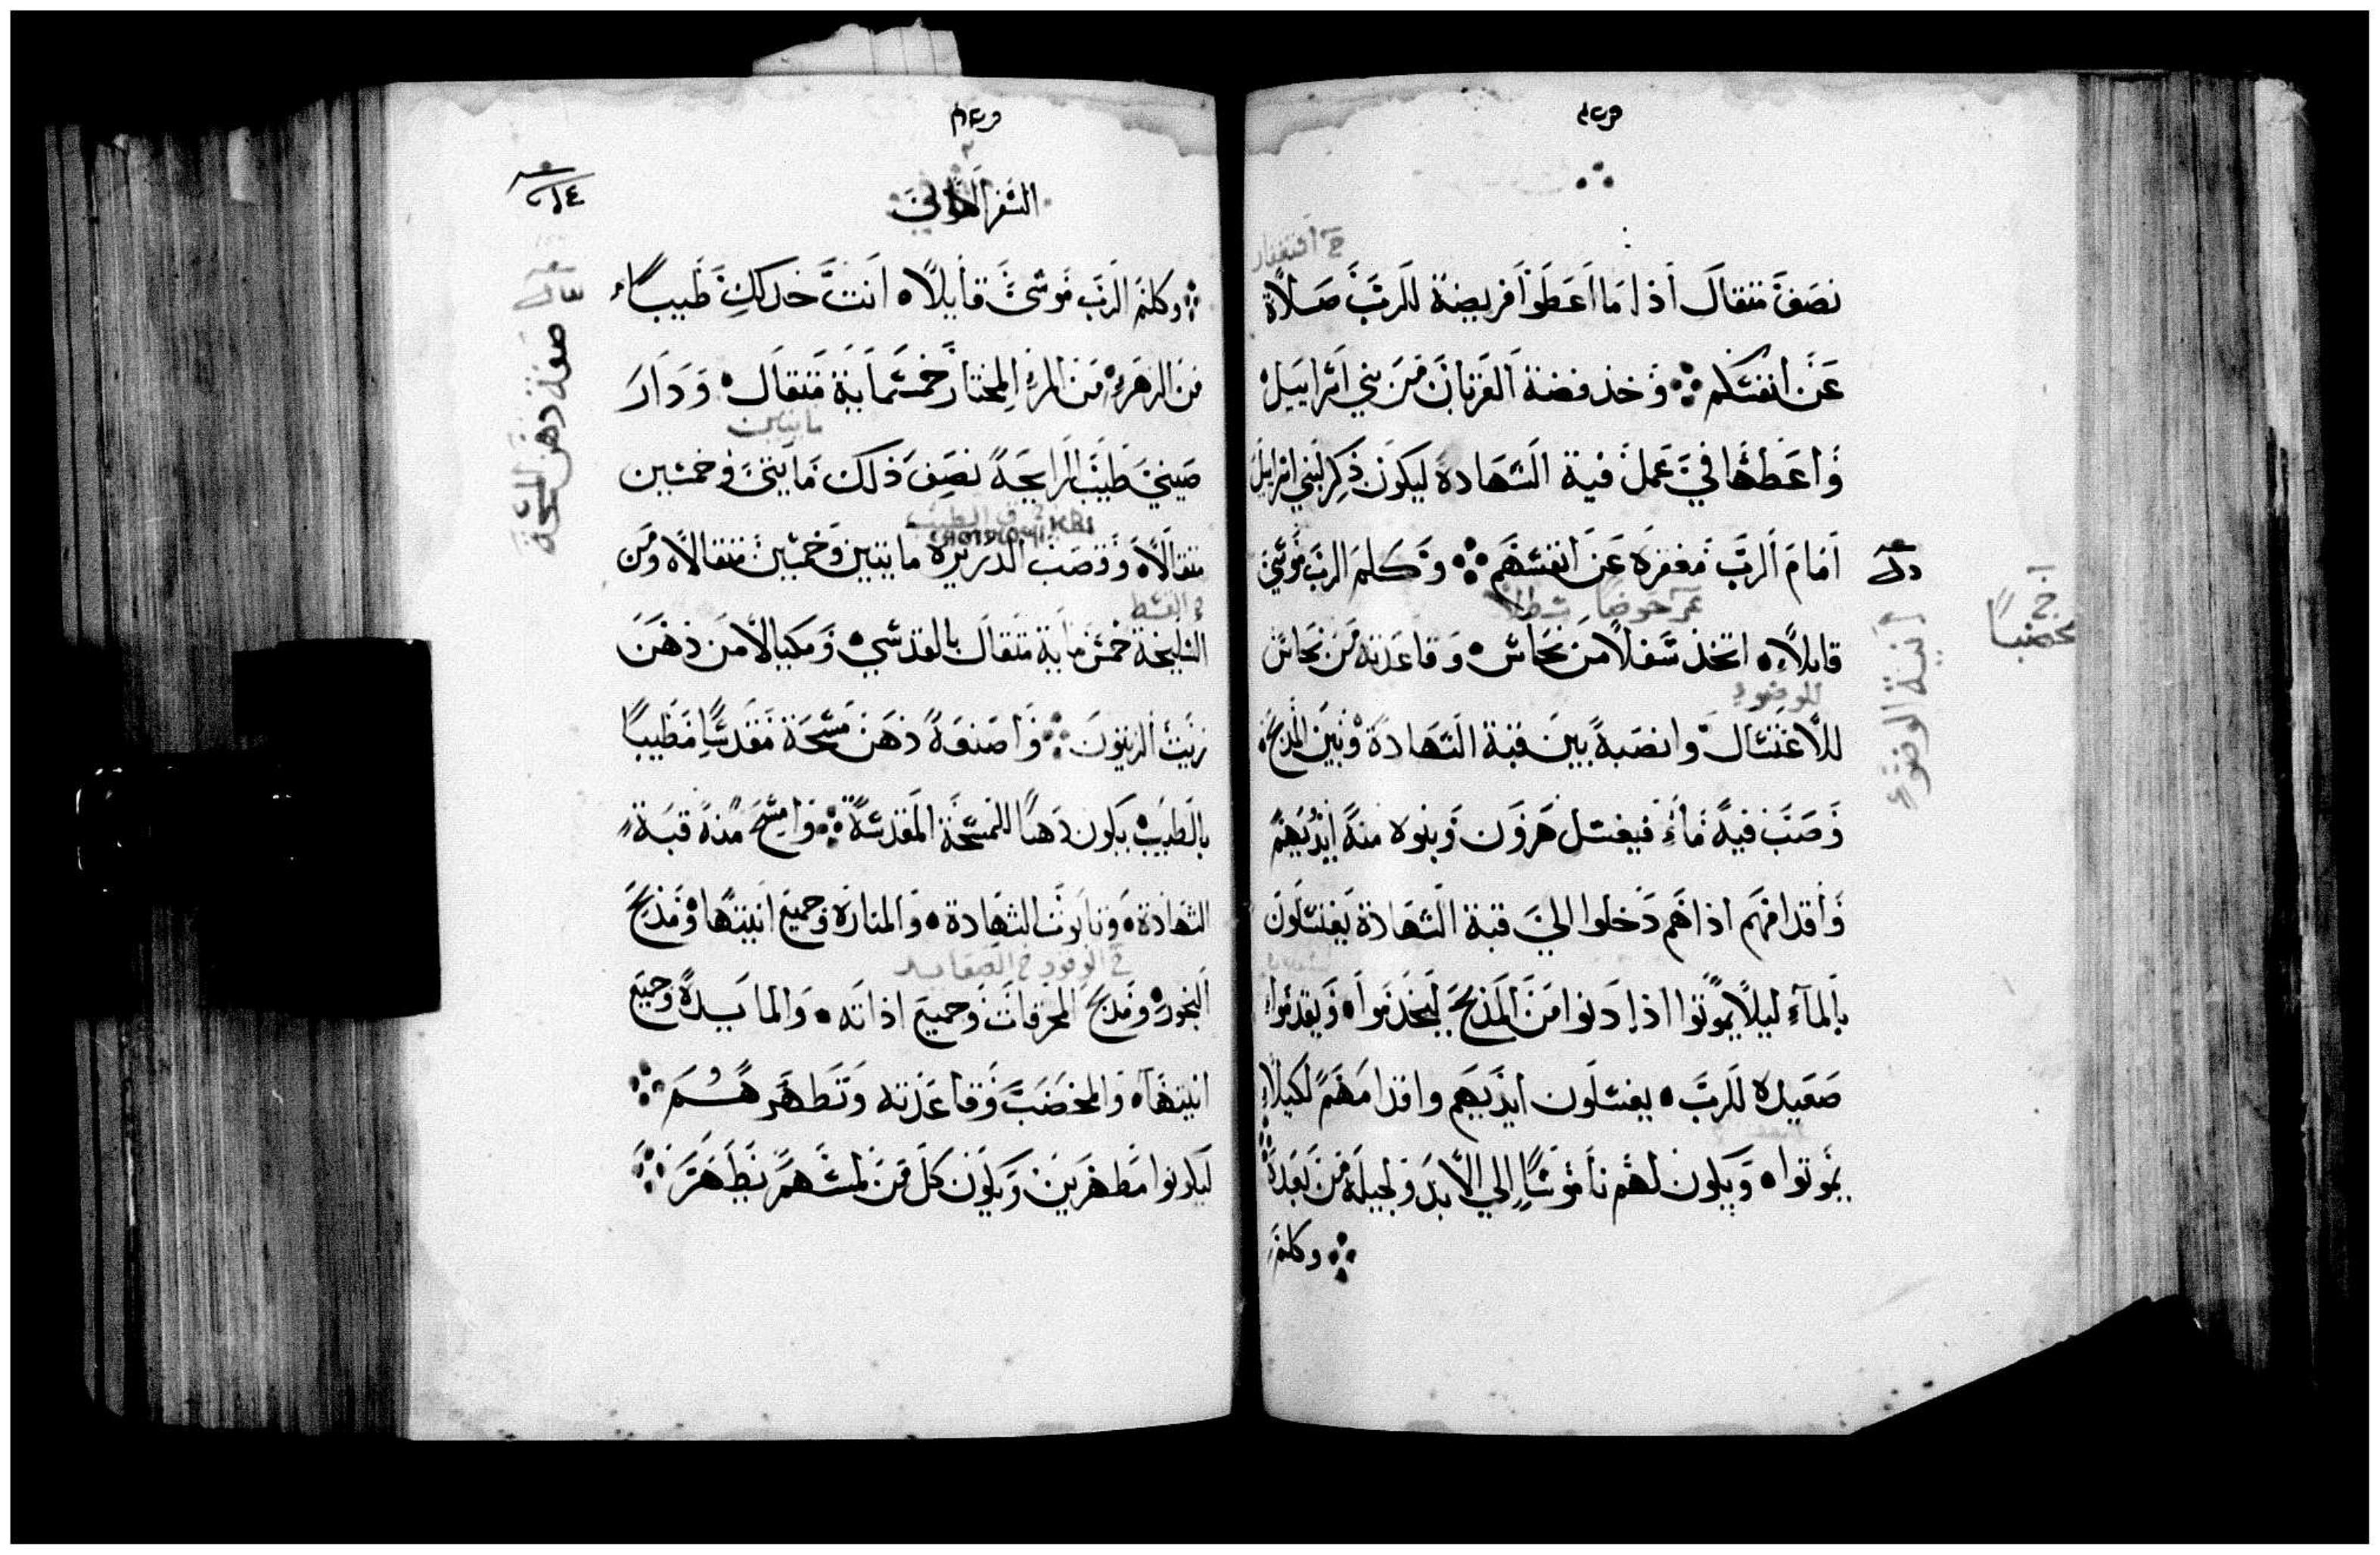 نصف مثقال اذا ما اعطوا فريضة للرب صلاة
عن انفسكم ۞ وخذ فضة القربان من بني اسراييل
واعطها في عمل قبة الشهادة ليكون ذكر لبني اسراييل
امام الرب مغفره عن انفسهم ۞ وكلم الرب موسي
قايلاً ٥ اتخذ سفلاً من نحاس ٥ وقاعدته من نحاس
للاغتسال وانصبه بين قبة الشهادة وبين المذبح
وصب فيه ماء فيغتسل هرون وبنوه منه ايديهم
واقدامهم اذا هم دخلوا الي قبة الشهادة يغتسلون
بالماء ليلا يموتوا اذا دنوا من المذبح ليخدموا ٥ ويقدموا
صعيده للرب ٥ يغسلون ايديهم واقدامهم لكيلا
يموتوا ٥ ويكون لهم ناموسًا الي الابد ولجيله من بعده
۞ وكلم
آنية الوضوء
للوضوء
السفر الثاني
۞ وكلم الرب موسي قايلاً ٥ انت خذ لك طيبًا
من الزهره من المر المختار خمسماية مثقال ٥ ودار
صيني طيب الرايحة نصف ذلك مايتي وخمسين
مثقالاً ٥ وقصب الدريره مايتين وخمسين مثقالاً ٥ ومن
السليخة خمس ماية مثقال بالقدسي ٥ ومكيالا من دهن
زيت الزيتون ۞ واصنعه دهن مسحة مقدسًا مطيبًا
بالطيب يكون دهنًا للمسحة المقدسة ۞ وامسح منه قبة
الشهادة ٥ وتابوت الشهادة ٥ والمنارة وجميع انيتها ٥ ومذبح
البخور ٥ ومذبح المحرقات وجميع اداته ٥ والمايدة وجميع
انيتها ٥ والمخضب وقاعدته وتطهرهم ۞
ليكونوا مطهرين ويكون كل من لمسهم يتطهر ۞
صفة دهن المسحة
مايتين